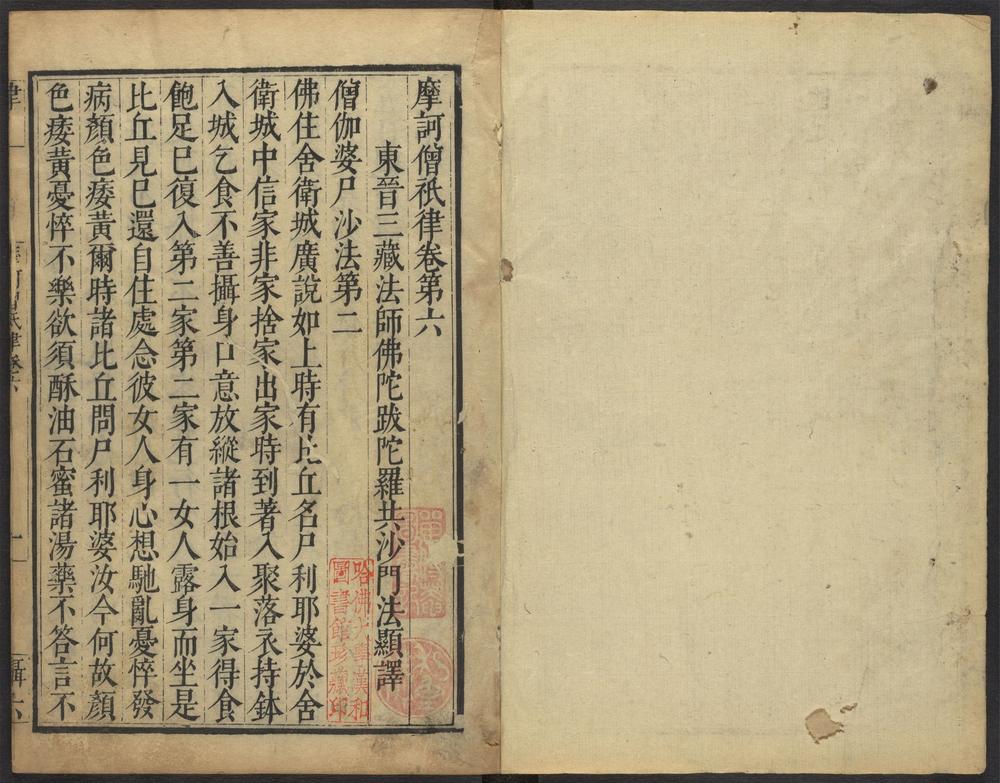 摩訶僧祇律卷第六
東晉三藏法師佛陀跋陀羅共沙門法顯譯
僧伽婆尸沙法第二
佛住舍衛城廣說如上時有比丘名尸利耶婆於舍
衛城中信家非家捨家出家時到著入聚落衣持鉢
入城乞食不善攝身口意放縱諸根始入一家得食
飽足已復入第二家第二家有一女人露身而坐是
比丘見已還自住處念彼女人身心想馳亂憂悴發
病顏色痿黃爾時諸比丘問尸利耶婆汝今何故顏
色痿黃憂悴不樂欲須酥油石蜜諸湯藥不答言不
哈佛大學漢和
圖書館珍藏印
律
卷六
一
攝六